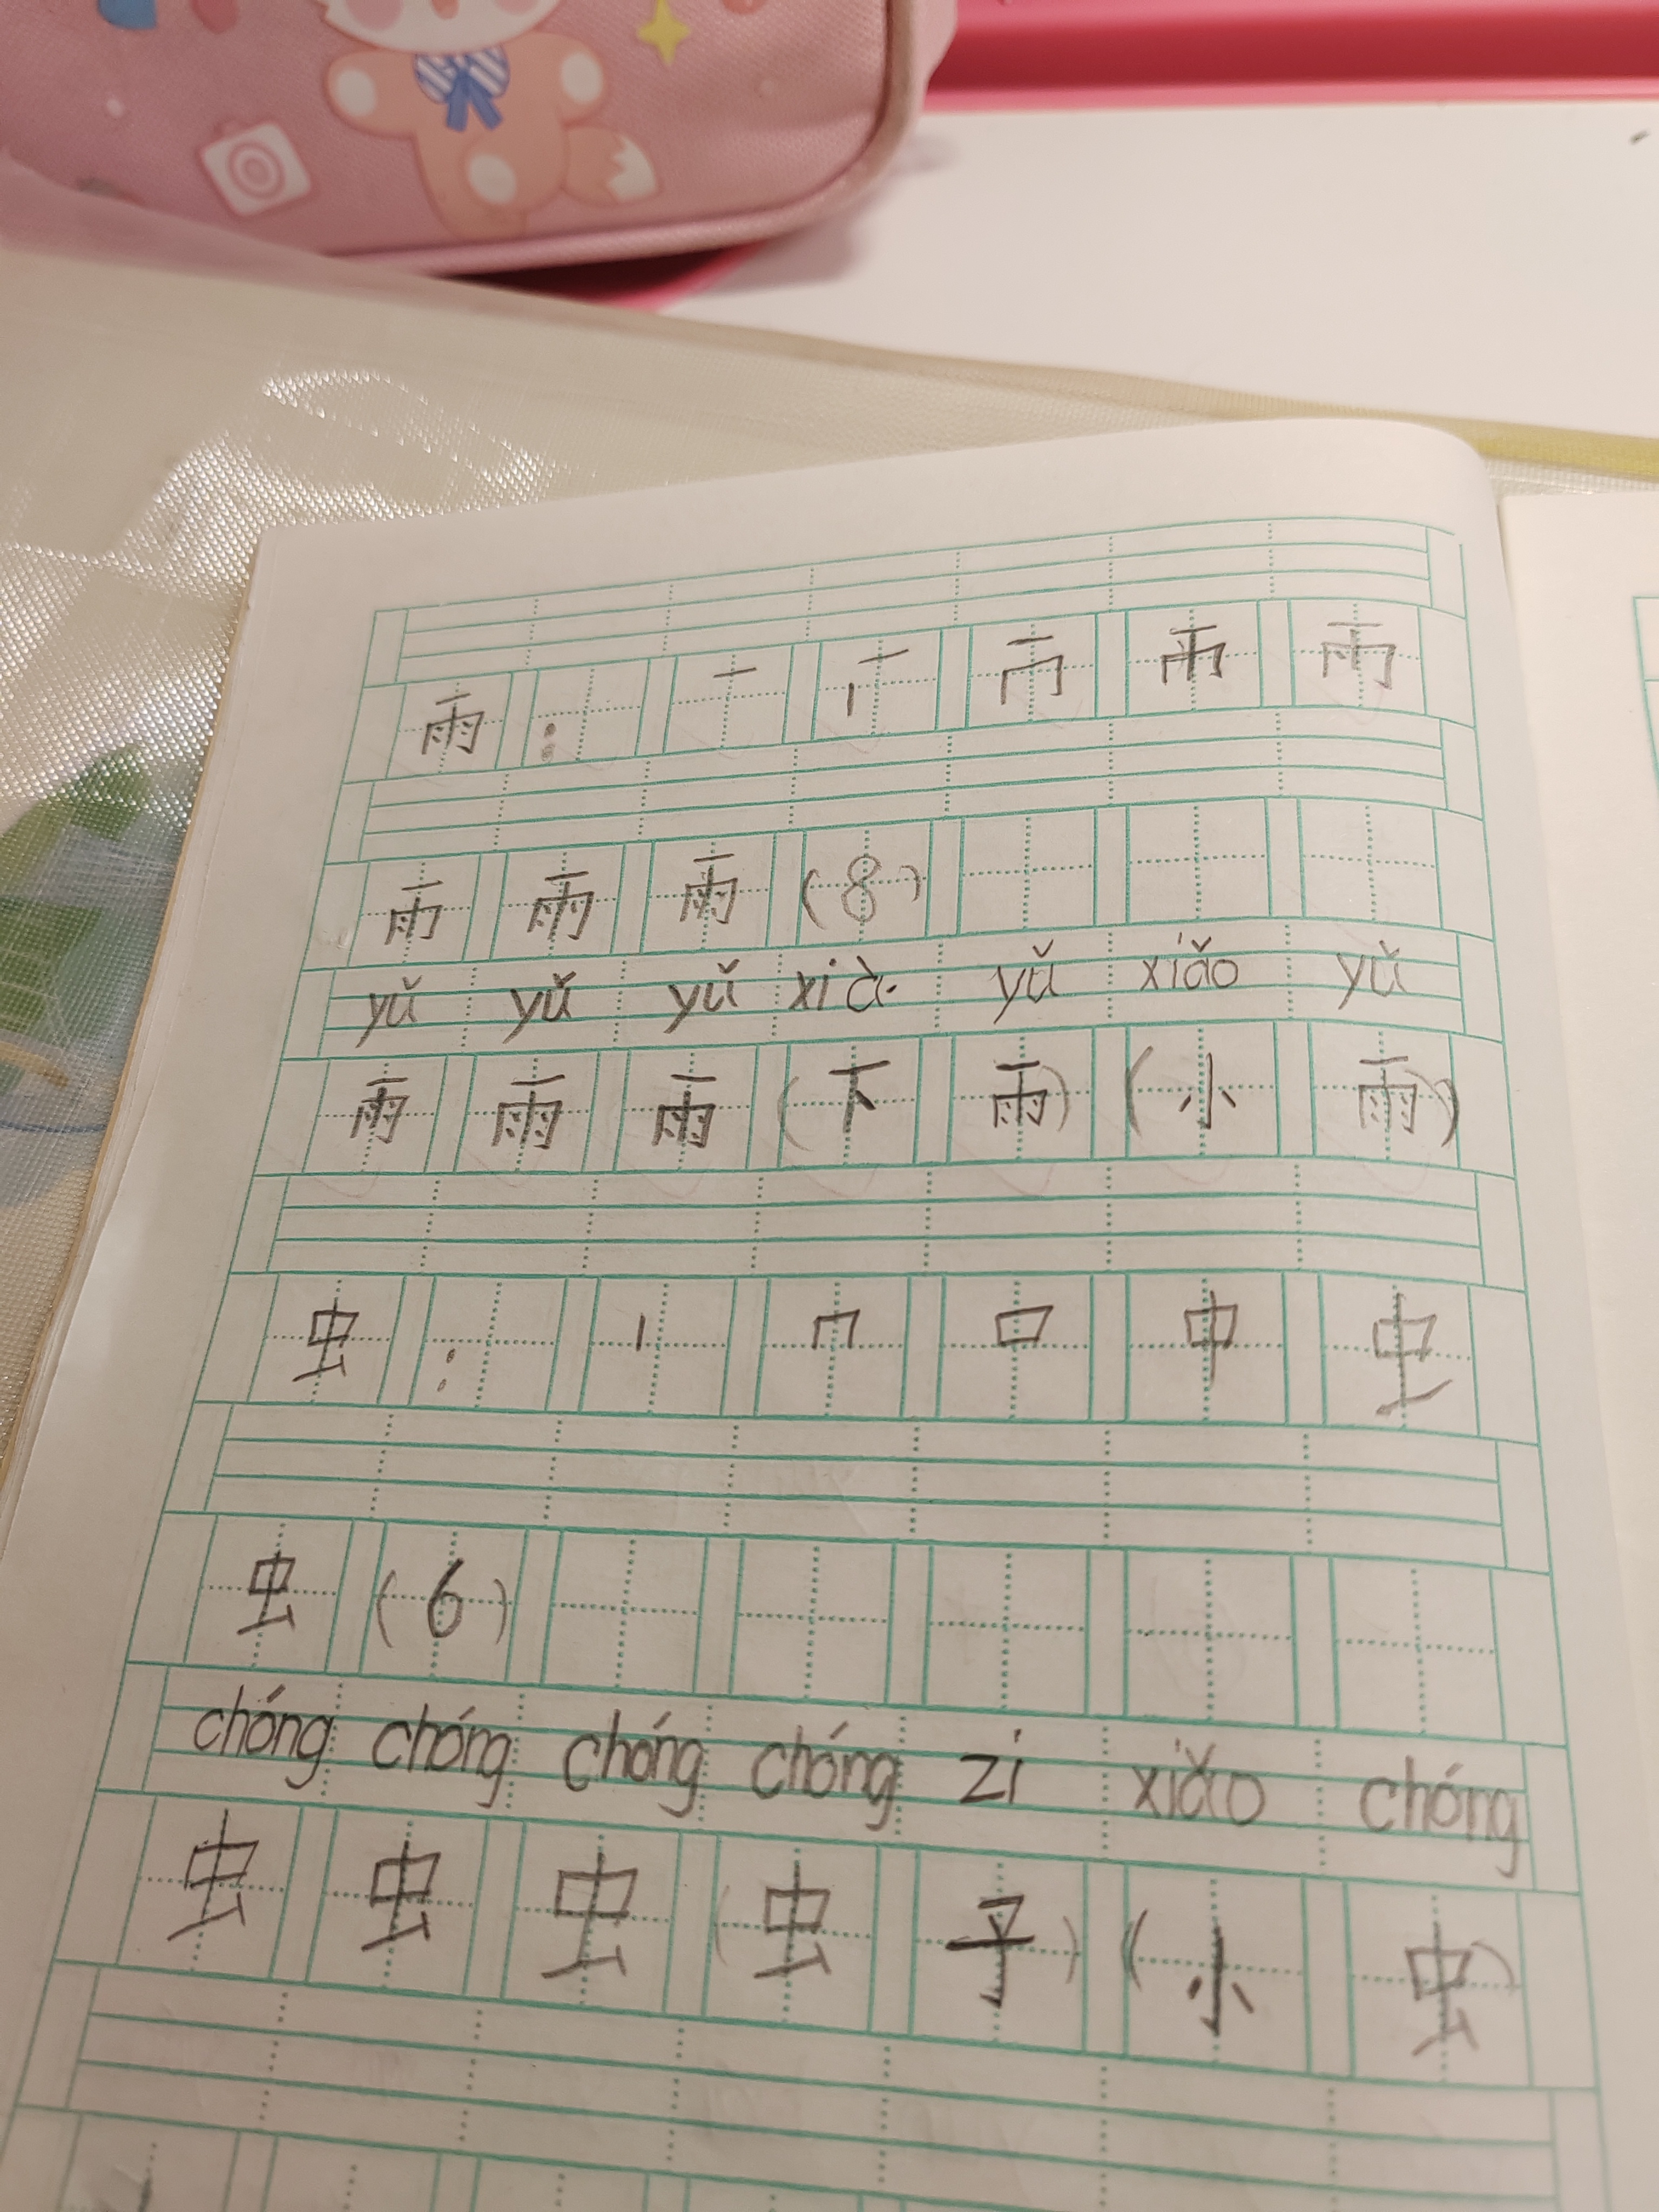 雨 : 一
雨 雨 雨 (8)
yǔ yǔ yǔ xià yǔ xiǎo yǔ
雨 雨 雨 (下 雨) (小 雨)
虫 : 丨 冂 口 中 虫
虫 (6)
chóng chóng chóng chóng zi xiǎo chóng
虫 虫 虫 (虫 子) (小 虫)